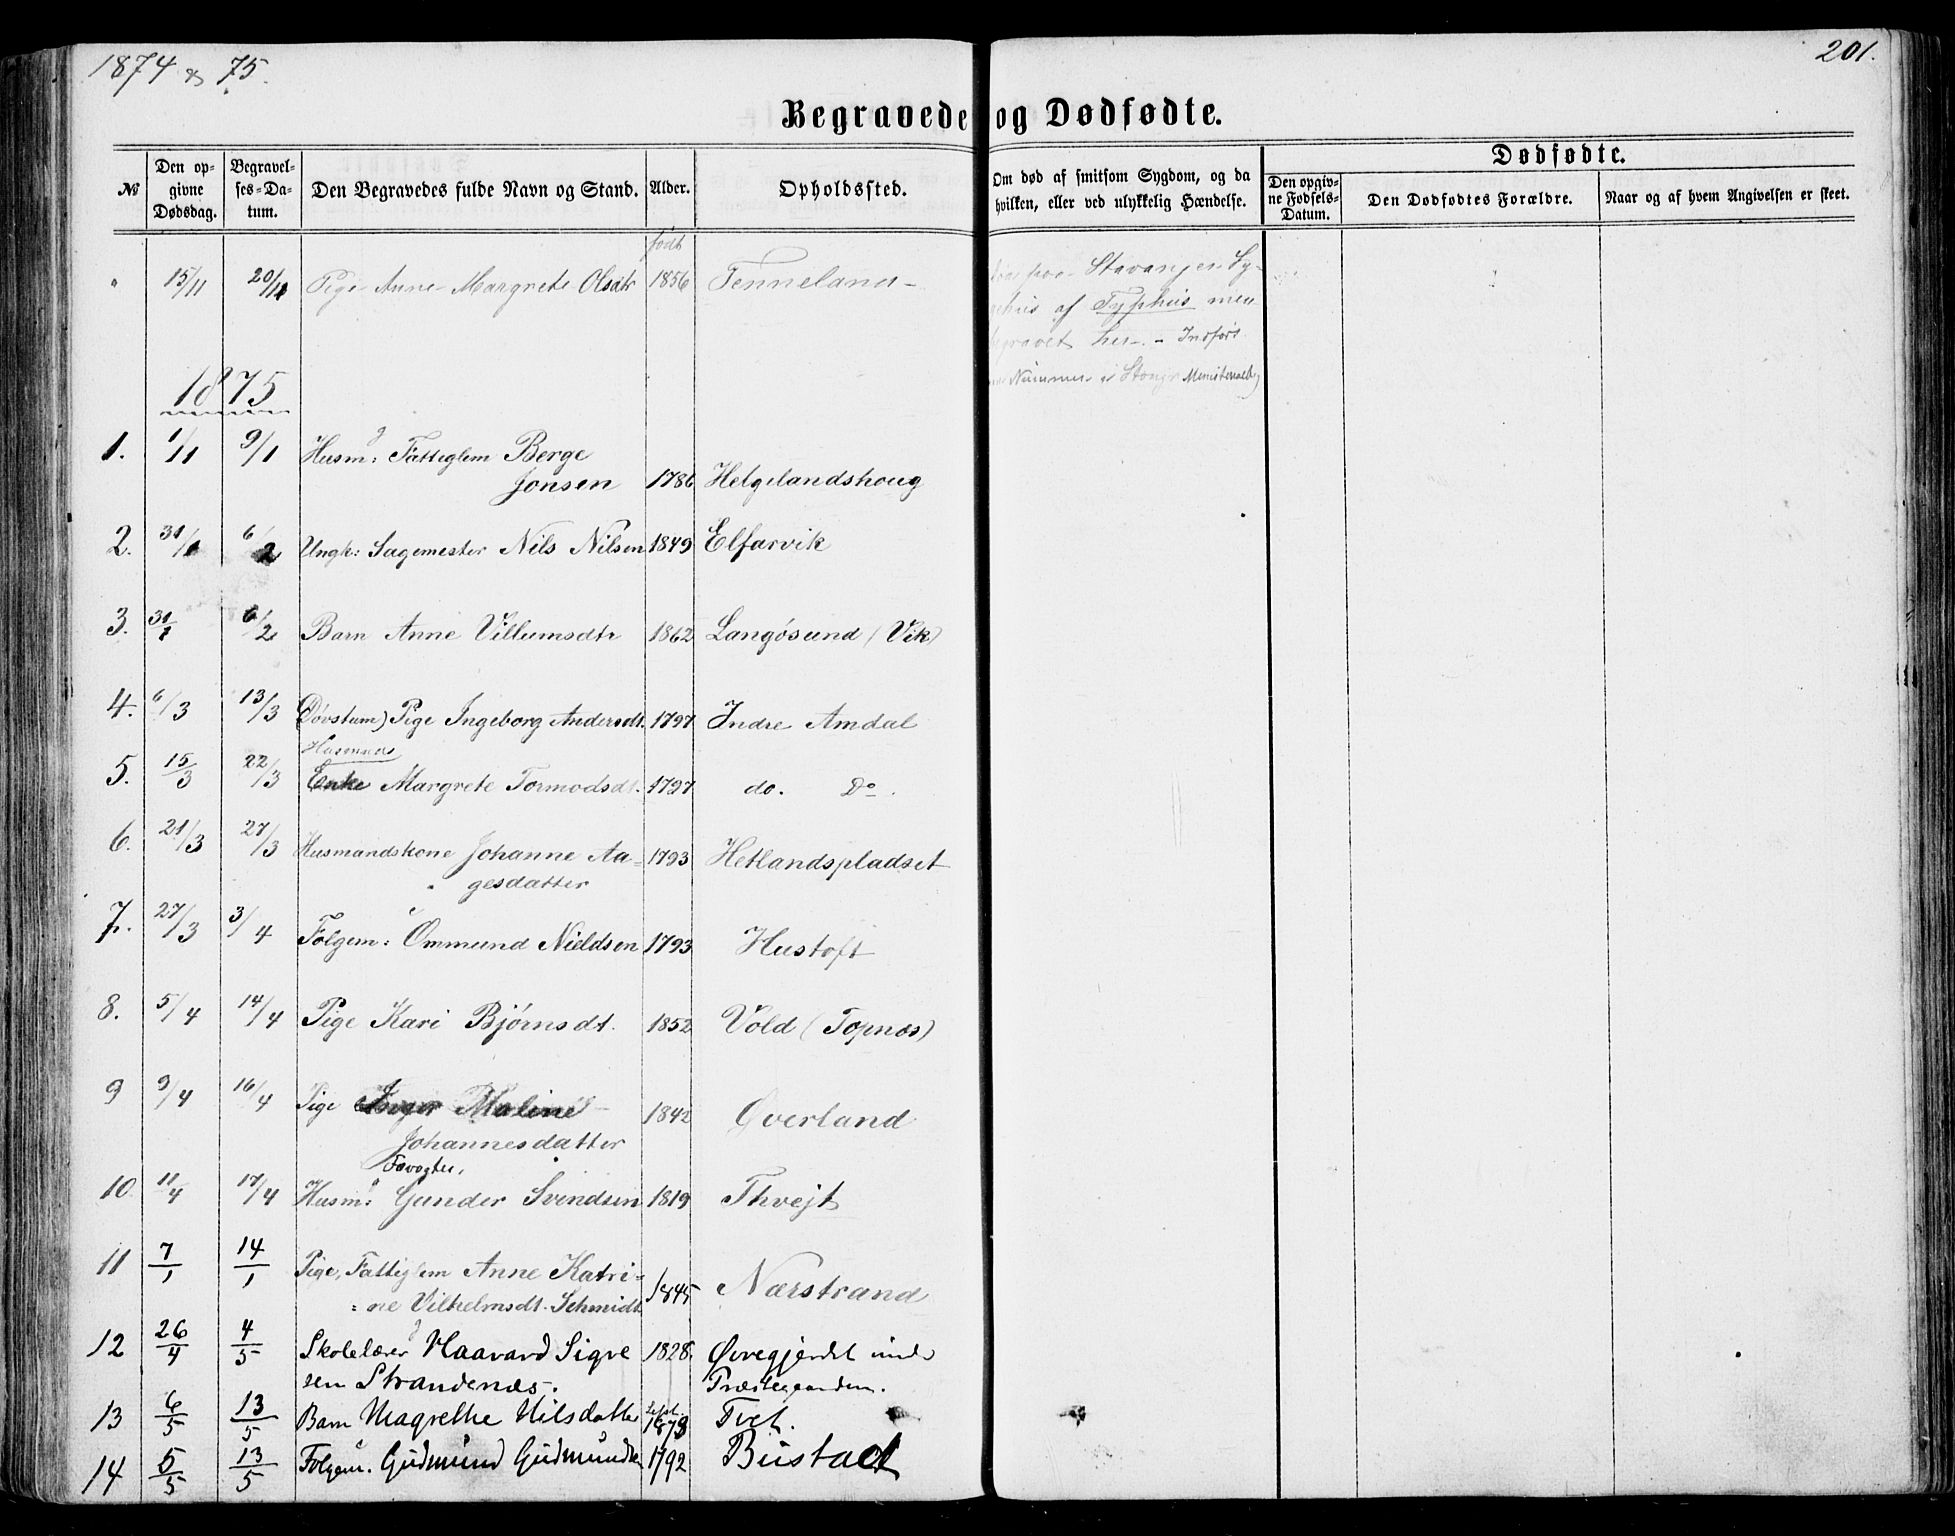 1874 & 75.
201.
Begravede og Dødfødte.
Dødfødte.
№
Den opgivne Dødsdag.
Begravelses-Datum.
Den Begravedes fulde Navn og Stand.
Alder.
Opholdssted.
Om død af smitsom Sygdom, og da hvilken, eller ved ulykkelig Hændelse.
Den opgivne Fødsels-Datum.
Den Dødfødtes Forældre.
Naar og af hvem Angivelsen er skeet.
" 15/11 20/11 Pige Anne Margrete Olsdtr født 1856 Tenneland
paa Stavanger Sy-
af Typhus men
begravet her. - Indført
Nummer i
1875
1. 1/1 9/1 Husm: Fattiglem Berge
Jonsen 1786 Helgelandshoug
2. 31/1 6/2 Ungk: Sagemester Nils Nilsen 1849 Elfarvik
3. 31/1 6/2 Barn Anne Villumsdtr 1862 Langøsund (Vik)
4. 6/3 13/3 (Døvstum) Pige Ingeborg Andersdt. 1797 Indre Amdal
Husmands
5. 15/3 22/3 Enke Margrete Tormodsdt. 1797 do. Do.
6. 21/3 27/3 Husmandskone Johanne Aa-
gesdatter 1793 Hetlandspladset
7. 27/3 3/4 Folgem: Ommund Nieldsen 1793 Hustoft
8. 5/4 14/4 Pige Kari Bjørnsdt. 1852 Vold (Topnæs)
9 9/4 16/4 Pige Inger Maline
Johannesdatter 1842 Øverland
10 11/4 17/4 Husm: Gunder Svendsen 1819 Thvejt
11 7/1 14/1 Pige, Fattiglem Anne Katri-
=ne Vilhelmsdt. Schmidt 1845 Nærstrand
12 26/4 4/5 Skolelærer Haavard Sigve 1828. Øvregjerdet under
sen Strandenæs. Præstegaarden.
13 6/5 13/5 Barn Magrethe Nilsdatter Sept. 1873 Tvet.
14 5/5 13/5 Folgem. Gudmund Gudmundsen 1792 Bustad